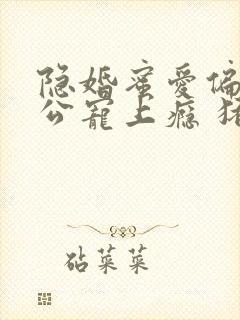 隐婚蜜爱偏
公宠上瘾
砧菜菜